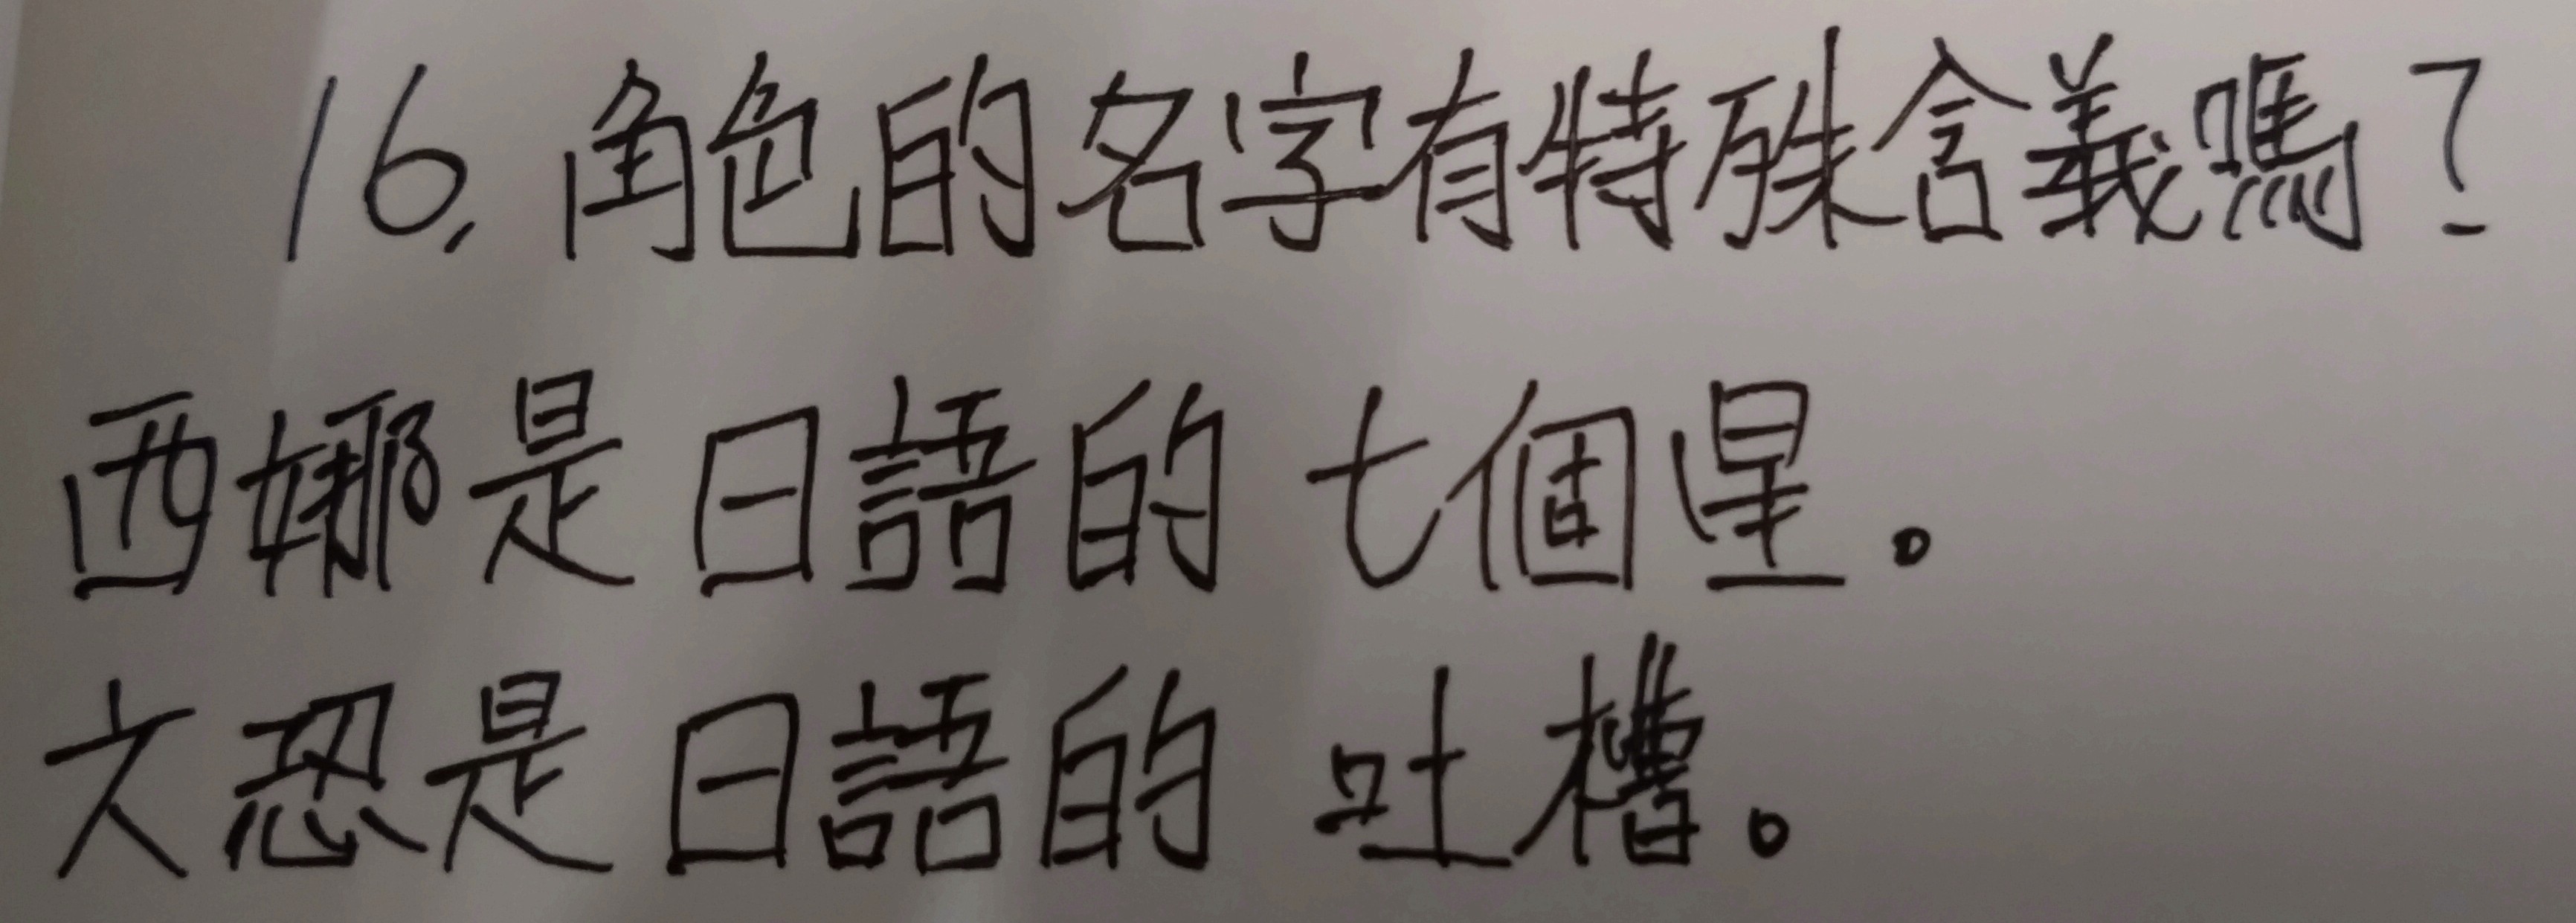 16. 角色的名字有特殊含義嗎？
西娜是日語的七個星。
文恐是日語的吐槽。